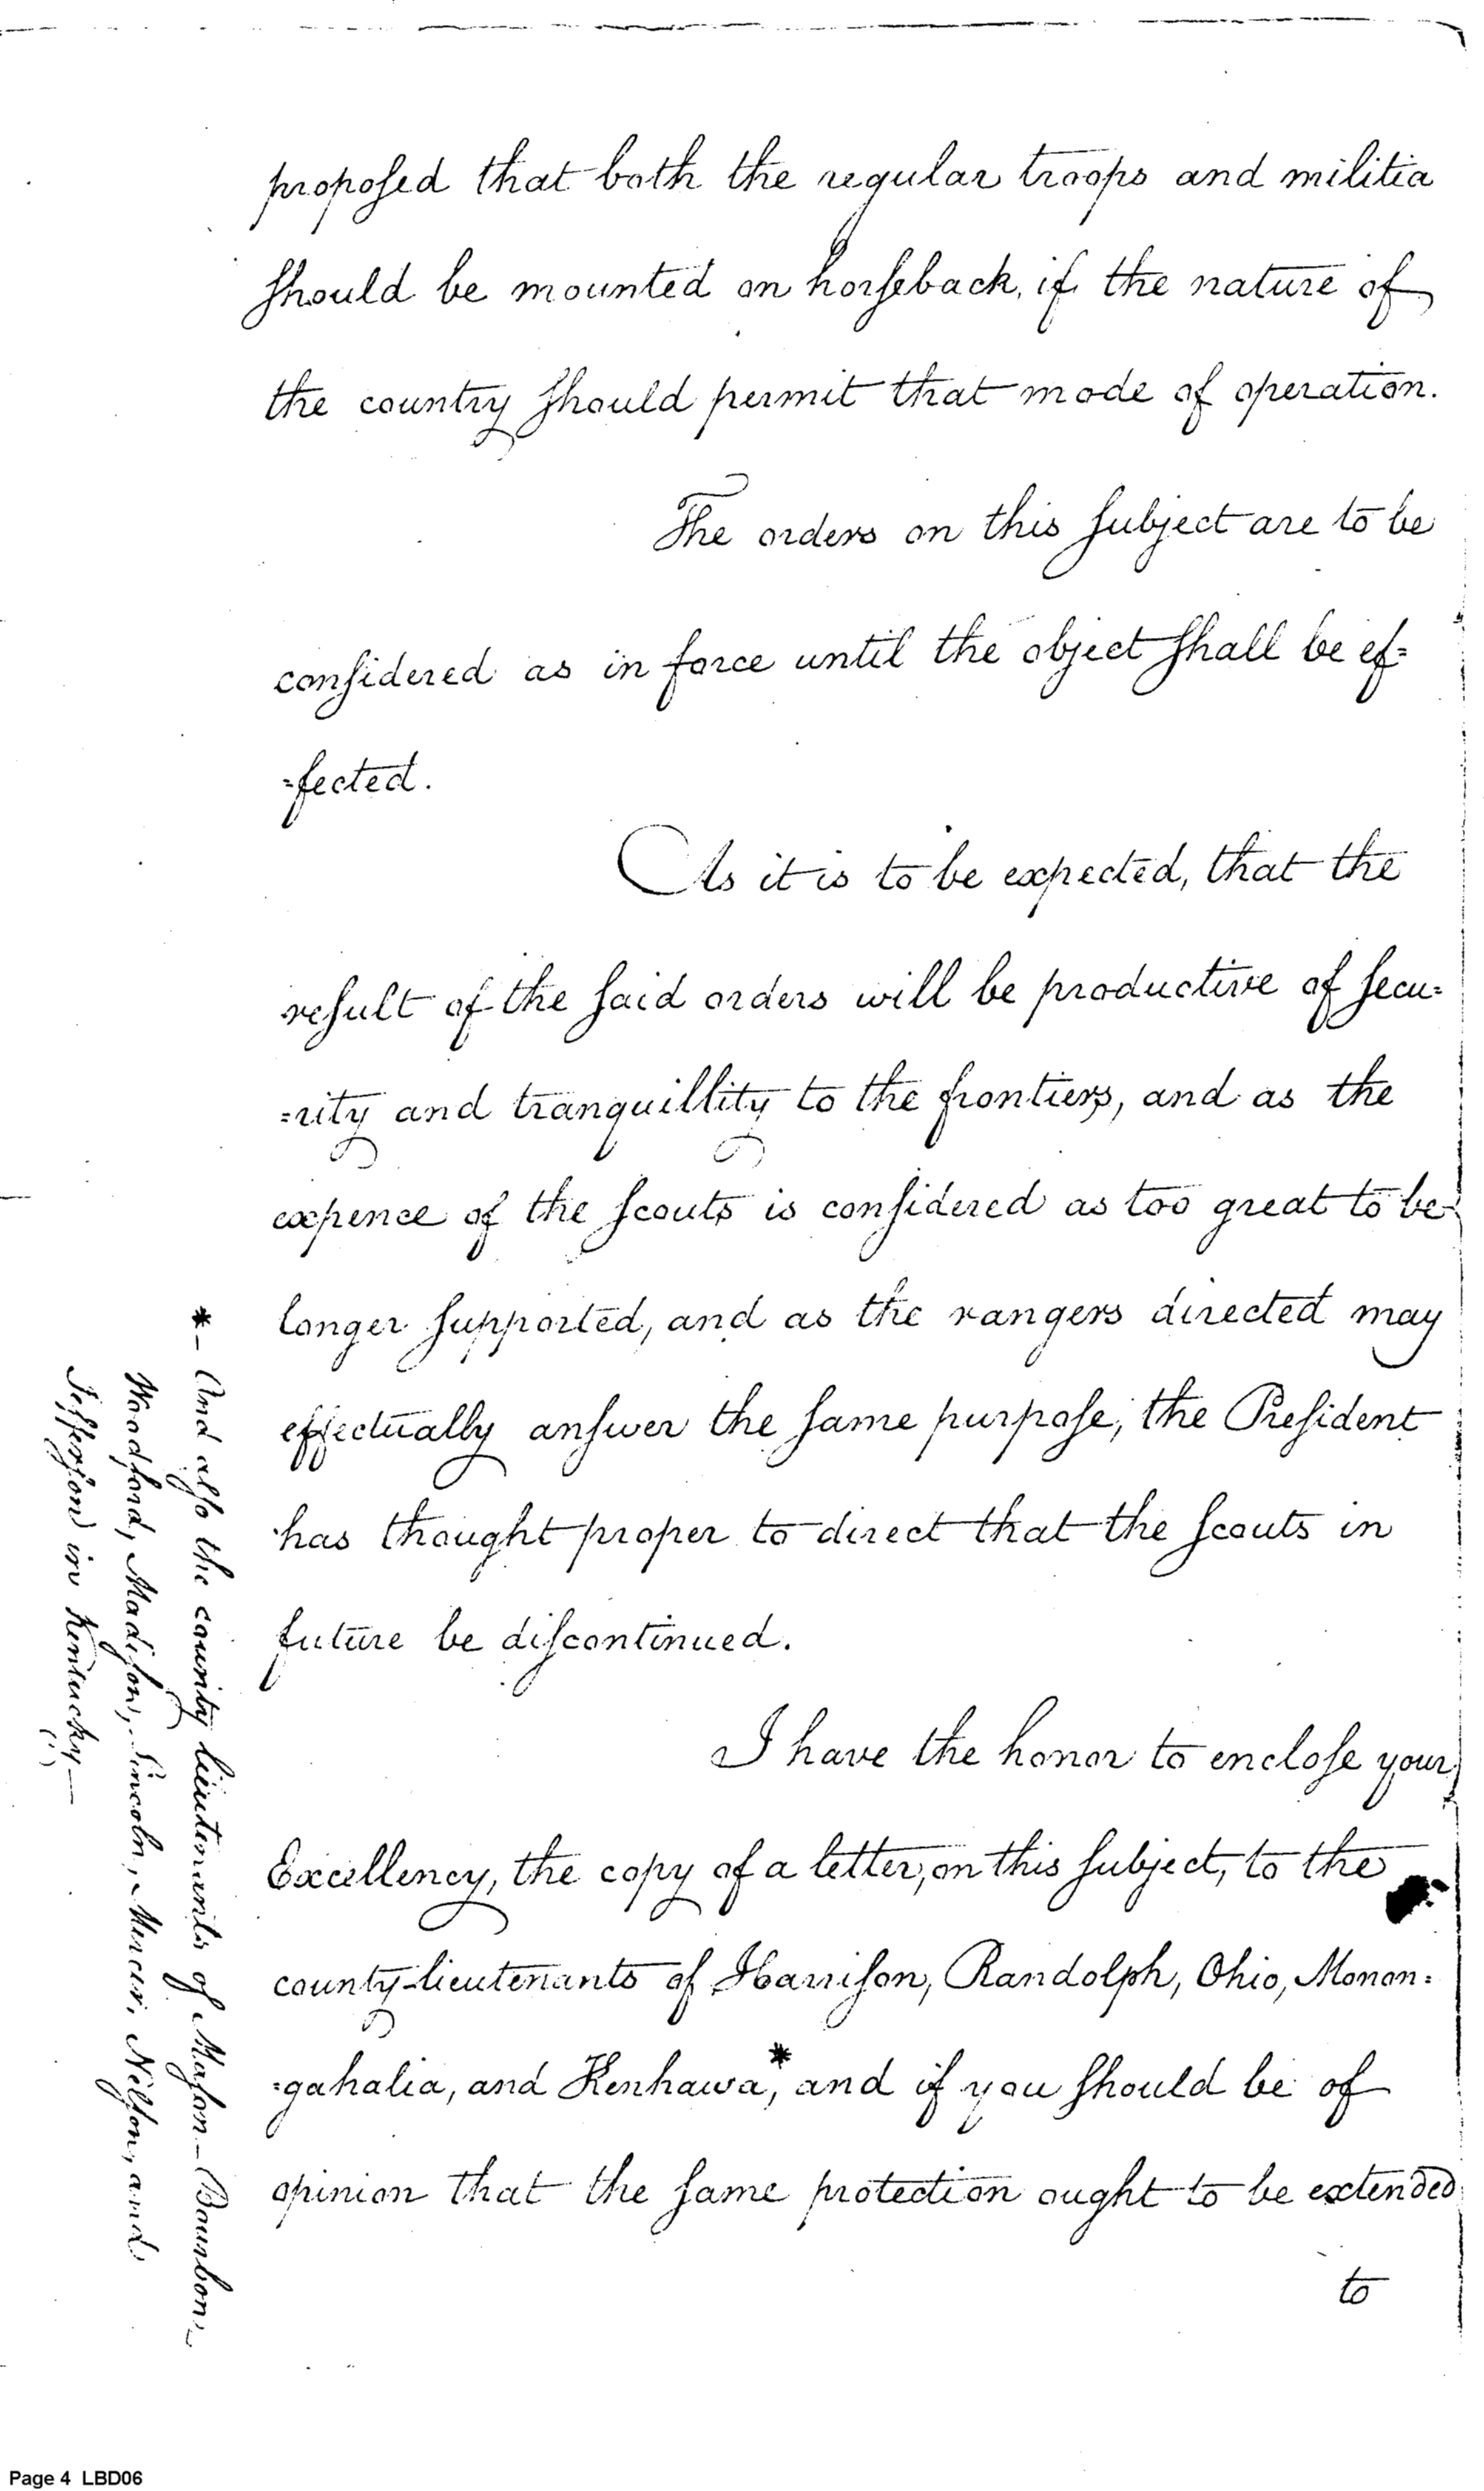 proposed that both the regular troops and militia
should be mounted on horseback, if the nature of
the country should permit that mode of operation.
The orders on this subject are to be
considered as in force until the object shall be ef=
=fected.
As it is to be expected, that the
result of the said orders will be productive of secu=
=rity and tranquillity to the frontiers, and as the
expence of the scouts is considered as too great to be
longer supported, and as the rangers directed may
effectually answer the same purpose, the President
has thought proper to direct that the scouts in
future be discontinued.
I have the honor to enclose your
Excellency, the copy of a letter, on this subject, to the
county lieutenants of Harrison, Randolph, Ohio, Monon=
=gahalia, and Kenhawa,* and if you should be of
opinion that the same protection ought to be extended
to
*– And also the county lieutenants of Mason – Bourbon,
Woodford, Madison, Lincoln, Mercer, Nelson, and
Jefferson in Kentucky —
Page 4 LBD06